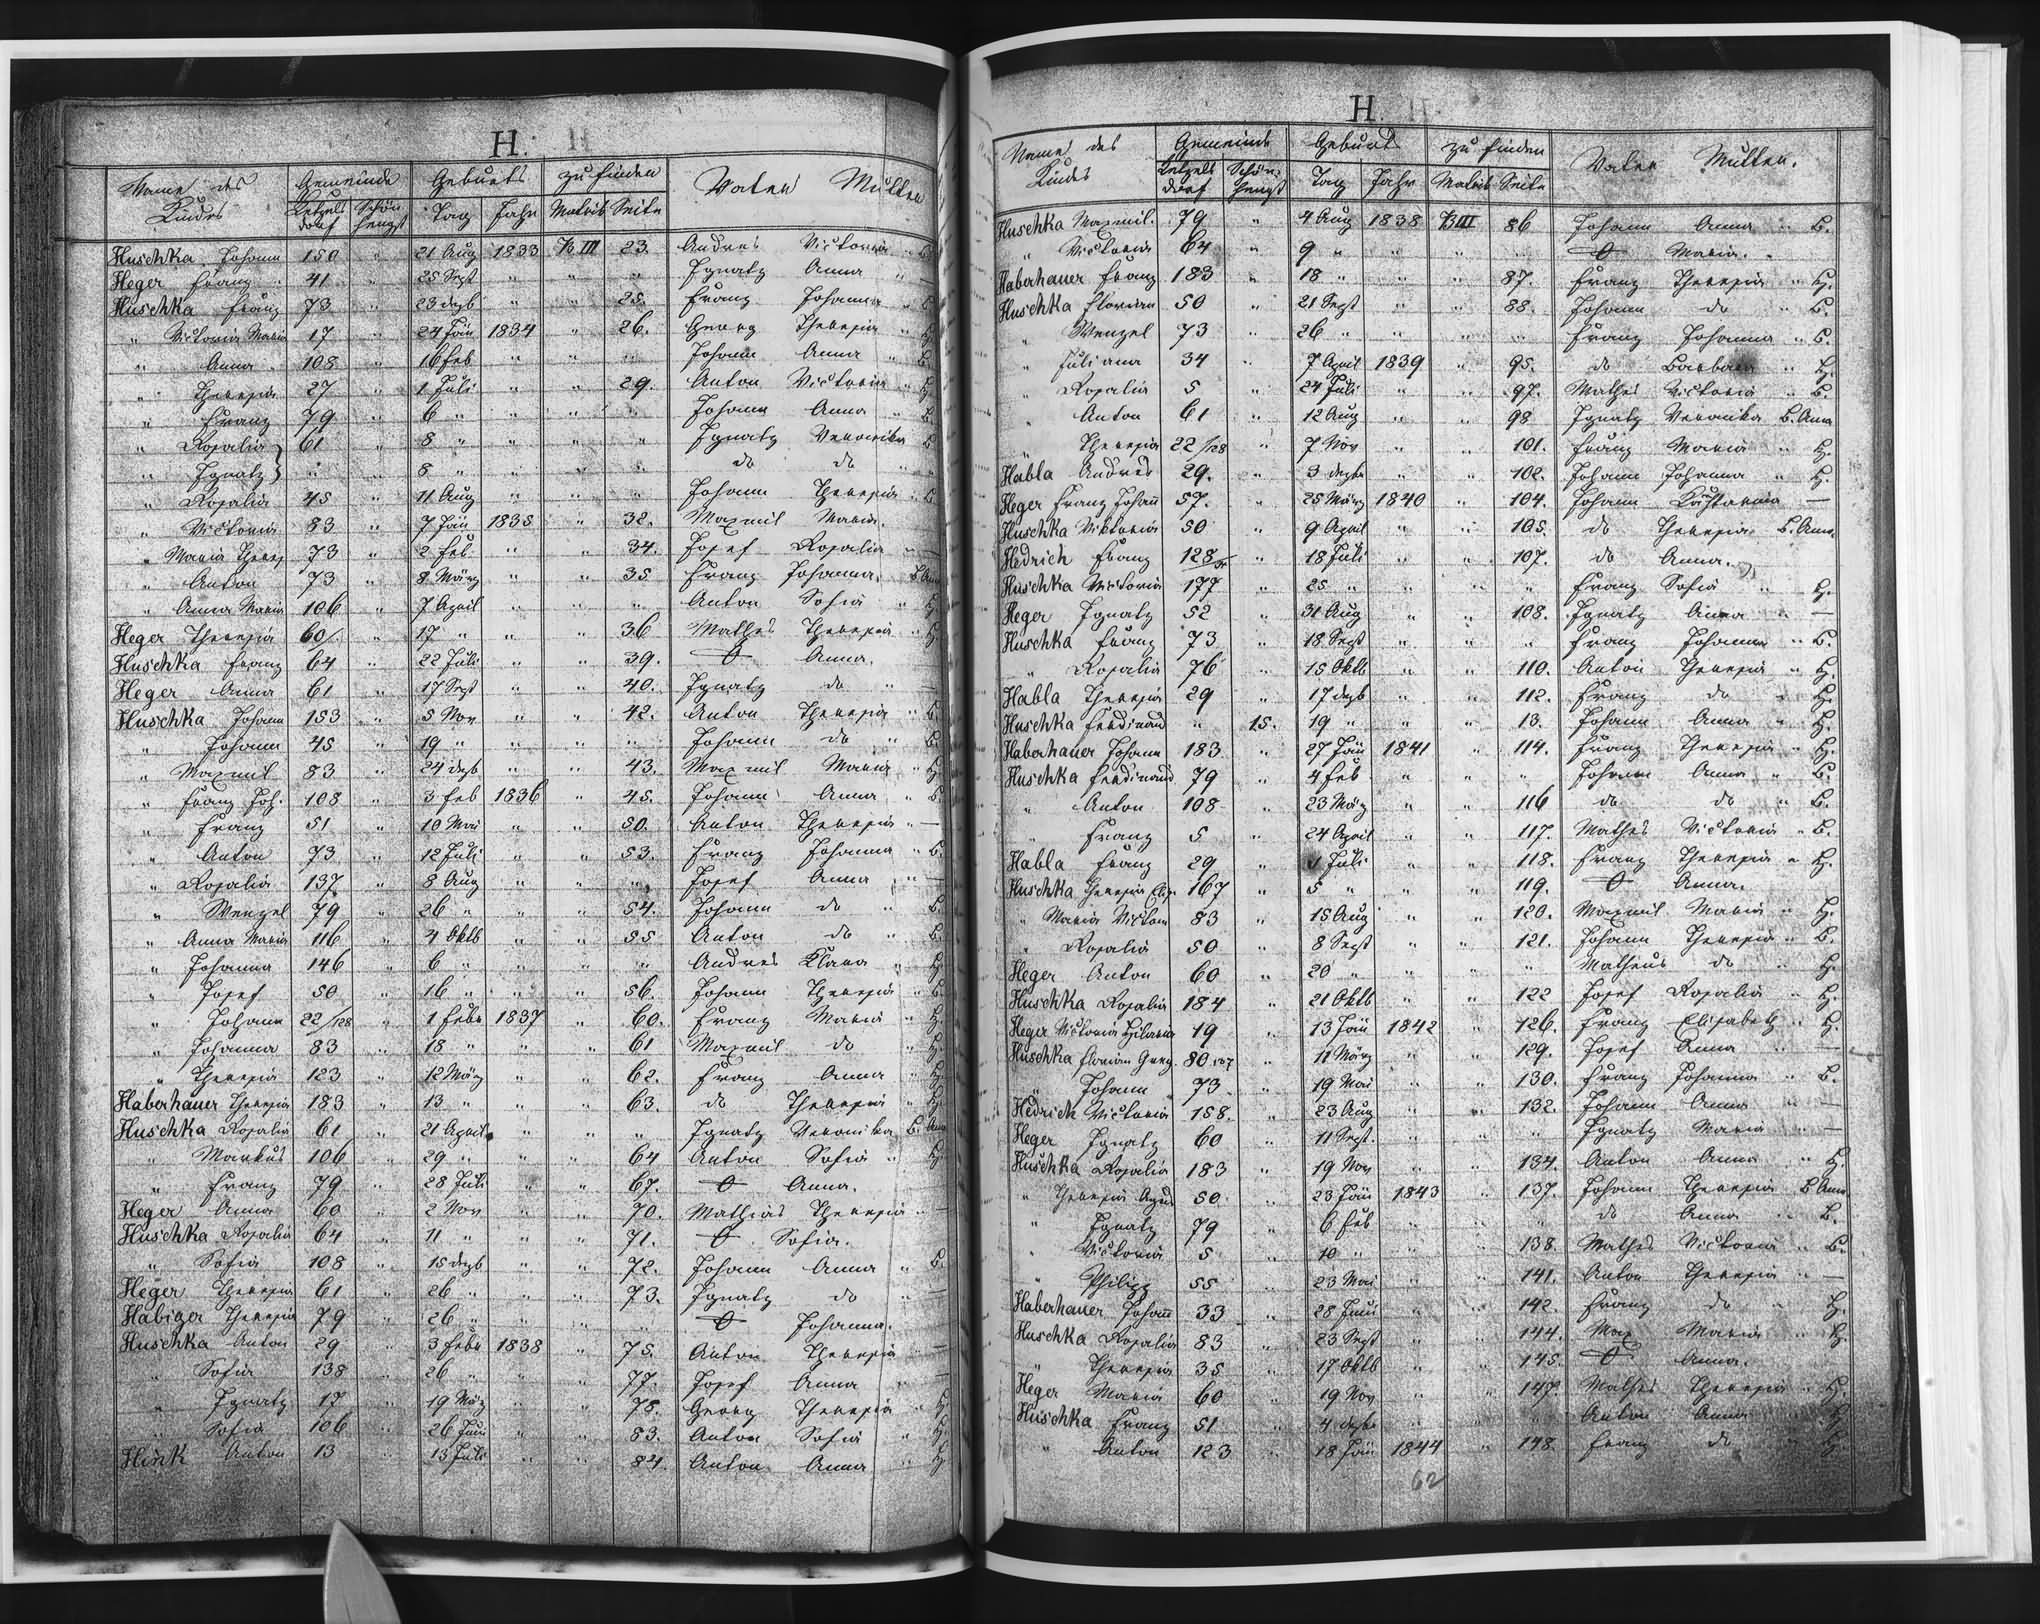 H.
Name des Kindes Gemeinde Geburts zu finden Vater Mutter
Ketzels dorf Schön hengst Tag Jahr Matrik Seite
Huschka Johann 150 " 21 Aug 1833 B III 23. Andres Victoria " B.
Heger Franz 41 " 25 Sept " " " Ignatz Anna " —
Huschka Franz 73 " 23 dezb " " 25. Franz Johanna " B
" Victoria Maria 17 " 24 Jäñ 1834 " 26. Georg Theresia " H
" Anna 108 " 16 Feb " " " Johann Anna " B.
" Theresia 27 " 1 Juli " " 29. Anton Victoria " H
" Franz 79 " 6 " " " " Johann Anna " B.
" Rosalia } 61 " 8 " " " " Ignatz Veronika B
" Ignatz } " " 8 " " " " do do " "
" Rosalia 45 " 11 Aug " " " Johann Theresia " B
" Victoria 83 " 7 Jäñ 1835 " 32. Maxmil Maria.
" Maria Theres 73 " 2 Feb " " 34. Josef Rosalia " —
" Anton 73 " 8 März " " 35 Franz Johanna. B Anna
" Anna Maria 106 " 7 April " " " Anton Sofia " H
Heger Theresia 60/. " 17 " " " 36 Mathes Theresia " H.
Huschka Franz 64 " 22 Juli " " 39. O Anna.
Heger Anna 61 " 17 Sept " " 40. Ignatz do " —
Huschka Johann 153 " 5 Nov " " 42. Anton Theresia " B.
" Johann 45 " 19 " " " " Johann do " B.
" Maxmil 83 " 24 dezb " " 43. Maxmil Maria " H
" Franz Joh. 108 " 3 Feb 1836 " 45. Johann Anna " B.
" Franz 51 " 10 Mai " " 50. Anton Theresia " —
" Anton 73 " 12 Juli " " 53. Franz Johanna " B.
" Rosalia 137 " 8 Aug " " " Josef Anna " —
" Wenzel 79 " 26 " " " 54. Johann do " B.
" Anna Maria 116 " 4 Oktb " " 55 Anton do " B.
" Johanna 146 " 6 " " " " Andres Klara " H.
" Josef 50 " 16 " " " 56. Johann Theresia " B
" Johann 22/128 " 1 Febr 1837 " 60. Franz Maria " H
" Johanna 83 " 18 " " " 61 Maxmil do " H
" Theresia 123 " 12 März " " 62. Franz Anna " H
Haberhauer Theresia 183 " 13 " " " 63. do Theresia " H
Huschka Rosalia 61 " 21 April " " " Ignatz Veronika B. Anna
" Markus 106 " 29 " " " 64 Anton Sofia " H
" Franz 79 " 28 Juli " " 67. O Anna.
Heger Anna 60 " 2 Nov " " 70. Mathias Theresia " —
Huschka Rosalia 64 " 11 " " " 71. O Sofia.
" Sofia 108 " 15 dezb " " 72. Johann Anna " B.
Heger Theresia 61 " 26 " " " 73. Ignatz do " —
Habiger Theresia 79 " 26 " " " " O Johanna.
Huschka Anton 29 " 3 Febr 1838 " 75. Anton Theresia " —
" Sofia 138 " 26 " " " 77. Josef Anna " —
" Ignatz 17 " 19 März " " 78. Georg Theresia " H
" Sofia 106 " 26 Juni " " 83. Anton Sofia " H.
Hink Anton 13 " 13 Juli " " 84. Anton Anna " H
H.
Name des Kindes Gemeinde Geburts zu finden Vater Mutter.
Ketzels dorf Schön hengst Tag Jahr Matrik Seite
Huschka Maxmil. 79 " 4 Aug 1838 B III 86 Johann Anna " B.
" Victoria 64 " 9 " " " " O Maria.
Haberhauer Franz 183 " 18 " " " 87. Franz Theresia " H.
Huschka Florian 50 " 21 Sept " " 88. Johann do " B.
" Wenzel 73 " 26 " " " " Franz Johanna " B.
" Juliana 34 " 7 April 1839 " 95. do Barbara " H.
" Rosalia 5 " 24 Juli " " 97. Mathes Victoria " B.
" Anton 61 " 12 Aug " " 98 Ignatz Veronika B. Anna
" Theresia 22/128 " 7 Nov " " 101. Franz Maria " H.
Habla Andres 29. " 3 dezbr " " 102. Johann Johanna " H.
Heger Franz Johañ 57. " 25 März 1840 " 104. Johann —
Huschka Viktoria 50 " 9 April " " 105. do Theresia B. Anna.
Hedrich Franz 128 " 18 Juli " " 107. do Anna.
Huschka Victoria 177 " 25 " " " " Franz Sofia " H.
Heger Ignatz 52 " 31 Aug " " 108. Ignatz Anna " —
Huschka Franz 73 " 18 Sept " " " Franz Johanna " B.
" Rosalia 76 " 15 Oktb " " 110. Anton Theresia " H.
Habla Theresia 29 " 17 dezb " " 112. Franz do " H.
Huschka Ferdinand " 15. 19 " " " 13. Johann Anna " H.
Haberhauer Johann 183 " 27 Jäñ 1841 " 114. Franz Theresia " H.
Huschka Ferdinand 79 " 4 Feb " " " Johann Anna " B.
" Anton 108 " 23 März " " 116 do do " B.
" Franz 5 " 24 April " " 117. Mathes Victoria " B.
Habla Franz 29 " 1 Juli " " 118. Franz Theresia " H.
Huschka Theresia Elis. 167 " 5 " " " 119. O Anna.
" Maria Victoria 83 " 15 Aug " " 120. Maxmil Maria " H.
" Rosalia 50 " 8 Sept " " 121. Johann Theresia " B.
Heger Anton 60 " 20 " " " " Matheus do " H.
Huschka Rosalia 184 " 21 Oktb " " 122 Josef Rosalia " H.
Heger Victoria Hilaria 19 " 13 Jäñ 1842 " 126. Franz Elisabeth " H.
Huschka Florian Greg. 80 137 " 11 März " " 129. Josef Anna " —
" Johann 73 " 19 Mai " " 130. Franz Johanna " B.
Hedrich Victoria 158. " 23 Aug " " 132. Johann Anna " —
Heger Ignatz 60 " 11 Sept. " " " Ignatz Maria " —
Huschka Rosalia 183 " 19 Nov " " 134. Anton Anna " H.
" Theresia Agnes 50 " 23 Jäñ 1843 " 137. Johann Theresia B Anna
" Ignatz 79 " 6 Feb " " " do Anna " B.
" Victoria 5 " 10 " " " 138. Mathes Victoria " B.
" Philipp 55 " 23 Mai " " 141. Anton Theresia " —
Haberhauer Johañ 33 " 28 Juni " " 142. Franz do " H.
Huschka Rosalia 83 " 23 Sept " " 144. Max Maria " H.
" Theresia 35 " 17 Oktb " " 145. O Anna.
Heger Maria 60 " 19 Nov " " 147. Mathes Theresia " H.
Huschka Franz 51 " 4 dezbr " " " Anton Anna " H
" Anton 123 " 18 Jäñ 1844 " 148. Franz do " H
62